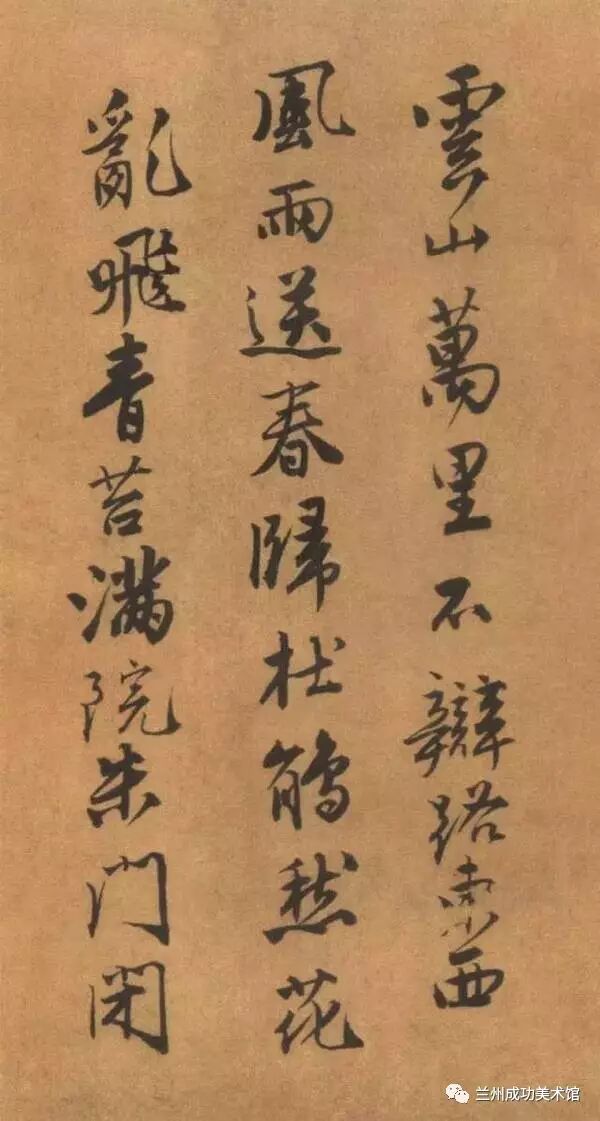 雲山萬里不辯路東西
風雨送春歸杜鵑愁花
亂飛青苔滿院朱門閉
兰州成功美术馆